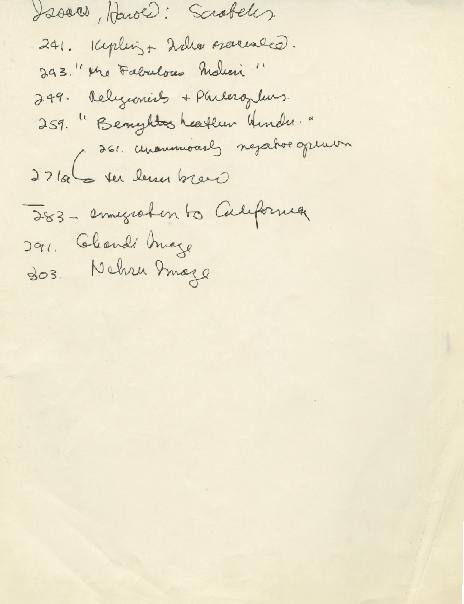 Isaacs, Harold: Scratches
241. Kipling + India
243. "the Fabulous Indian"
249. Religionists + Philosophers.
259. "Benighted heathen Hindu."
261. unanimously negative opinion
271a the lesser breed
283 - immigration to California
291. Ghandi Image
303. Nehru Image